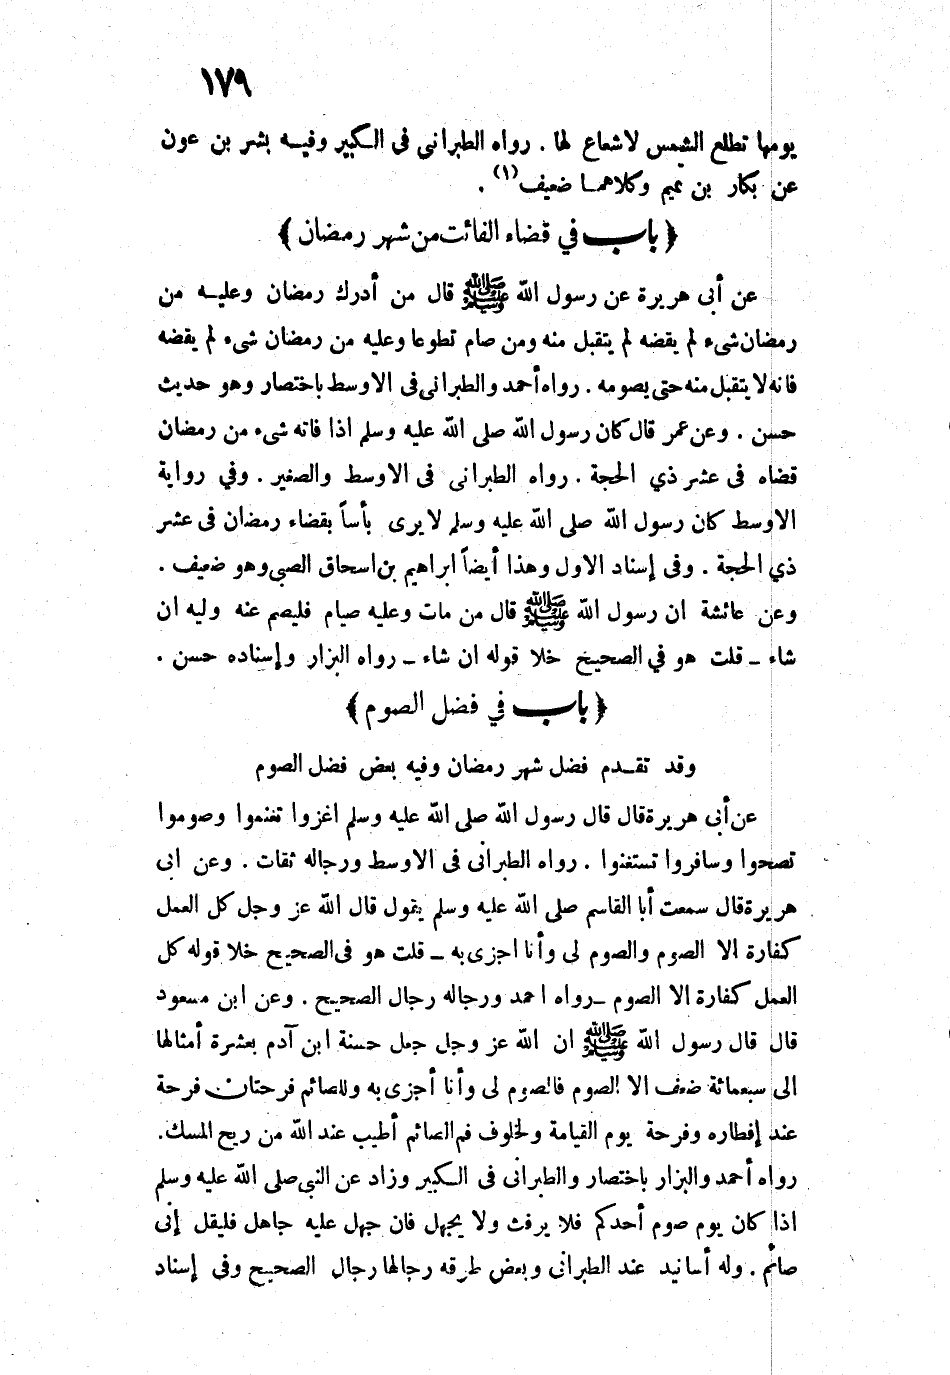 ١٧٩
يومها تطلع الشمس لاشعاع لها . رواه الطبراني فى الكبير وفيه بشر بن عون
عن بكار بن تميم وكلاهما ضعيف(١) .
﴿ باب في قضاء الفائت من شهر رمضان ﴾
عن أبى هريرة عن رسول الله ﷺ قال من أدرك رمضان وعليه من
رمضان شىء لم يقضه لم يتقبل منه ومن صام تطوعا وعليه من رمضان شىء لم يقضه
فانه لا يتقبل منه حتى يصومه . رواه أحمد والطبرانى فى الاوسط باختصار وهو حديث
حسن . وعن عمر قال كان رسول الله صلى الله عليه وسلم اذا فاته شىء من رمضان
قضاه فى عشر ذي الحجة . رواه الطبرانى فى الاوسط والصغير . وفي رواية
الاوسط كان رسول الله صلى الله عليه وسلم لا يرى بأساً بقضاء رمضان فى عشر
ذي الحجة . وفى إسناد الاول وهذا أيضاً ابراهيم بن اسحاق الصبى وهو ضعيف .
وعن عائشة ان رسول الله ﷺ قال من مات وعليه صيام فليصم عنه وليه ان
شاء - قلت هو في الصحيح خلا قوله ان شاء - رواه البزار وإسناده حسن .
﴿ باب في فضل الصوم ﴾
وقد تقدم فضل شهر رمضان وفيه بعض فضل الصوم
عن أبى هريرة قال قال رسول الله صلى الله عليه وسلم اغزوا تغنموا وصوموا
تصحوا وسافروا تستغنوا . رواه الطبرانى فى الاوسط ورجاله ثقات . وعن ابى
هريرة قال سمعت أبا القاسم صلى الله عليه وسلم يقول قال الله عز وجل كل العمل
كفارة الا الصوم والصوم لى وأنا اجزى به - قلت هو فى الصحيح خلا قوله كل
العمل كفارة الا الصوم - رواه احمد ورجاله رجال الصحيح . وعن ابن مسعود
قال قال رسول الله ﷺ ان الله عز وجل جعل حسنة ابن آدم بعشرة أمثالها
الى سبعمائة ضعف الا الصوم فالصوم لى وأنا أجزى به وللصائم فرحتان فرحة
عند إفطاره وفرحة يوم القيامة ولخلوف فم الصائم أطيب عند الله من ريح المسك.
رواه أحمد والبزار باختصار والطبرانى فى الكبير وزاد عن النبى صلى الله عليه وسلم
اذا كان يوم صوم أحدكم فلا يرفث ولا يجهل فان جهل عليه جاهل فليقل إنى
صائم . وله أسانيد عند الطبرانى وبعض طرقه رجالها رجال الصحيح وفى إسناد